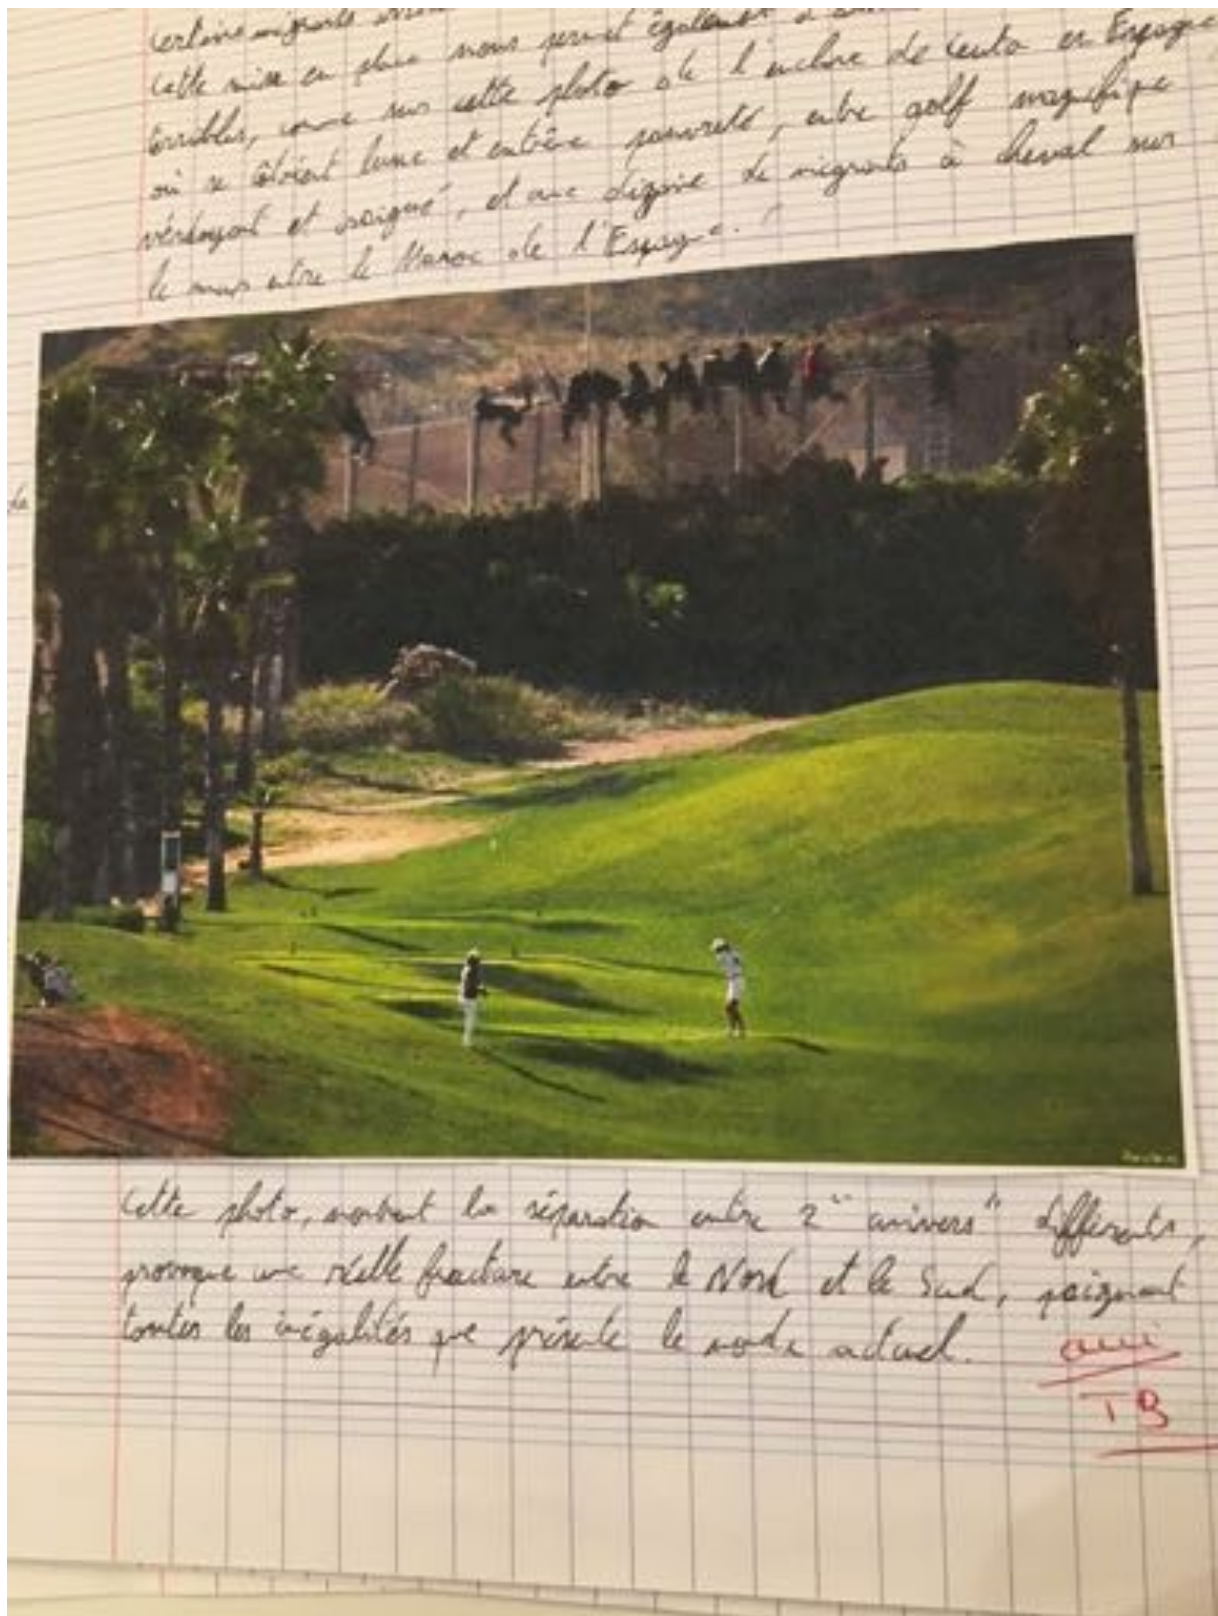 certains migrants
Cette mise en place nous permet également
terribles, comme sur cette photo de l'enclave de Ceuta en Espagne
où se côtoient luxe et extrême pauvreté, entre golf magnifique
verdoyant et soigné, et une dizaine de migrants à cheval sur
le mur entre le Maroc de l'Espagne.
de
Cette photo, montrant la séparation entre 2 "univers" différents,
provoque une réelle fracture entre le Nord et le Sud, peignant
toutes les inégalités que présente le monde actuel.
oui
TB